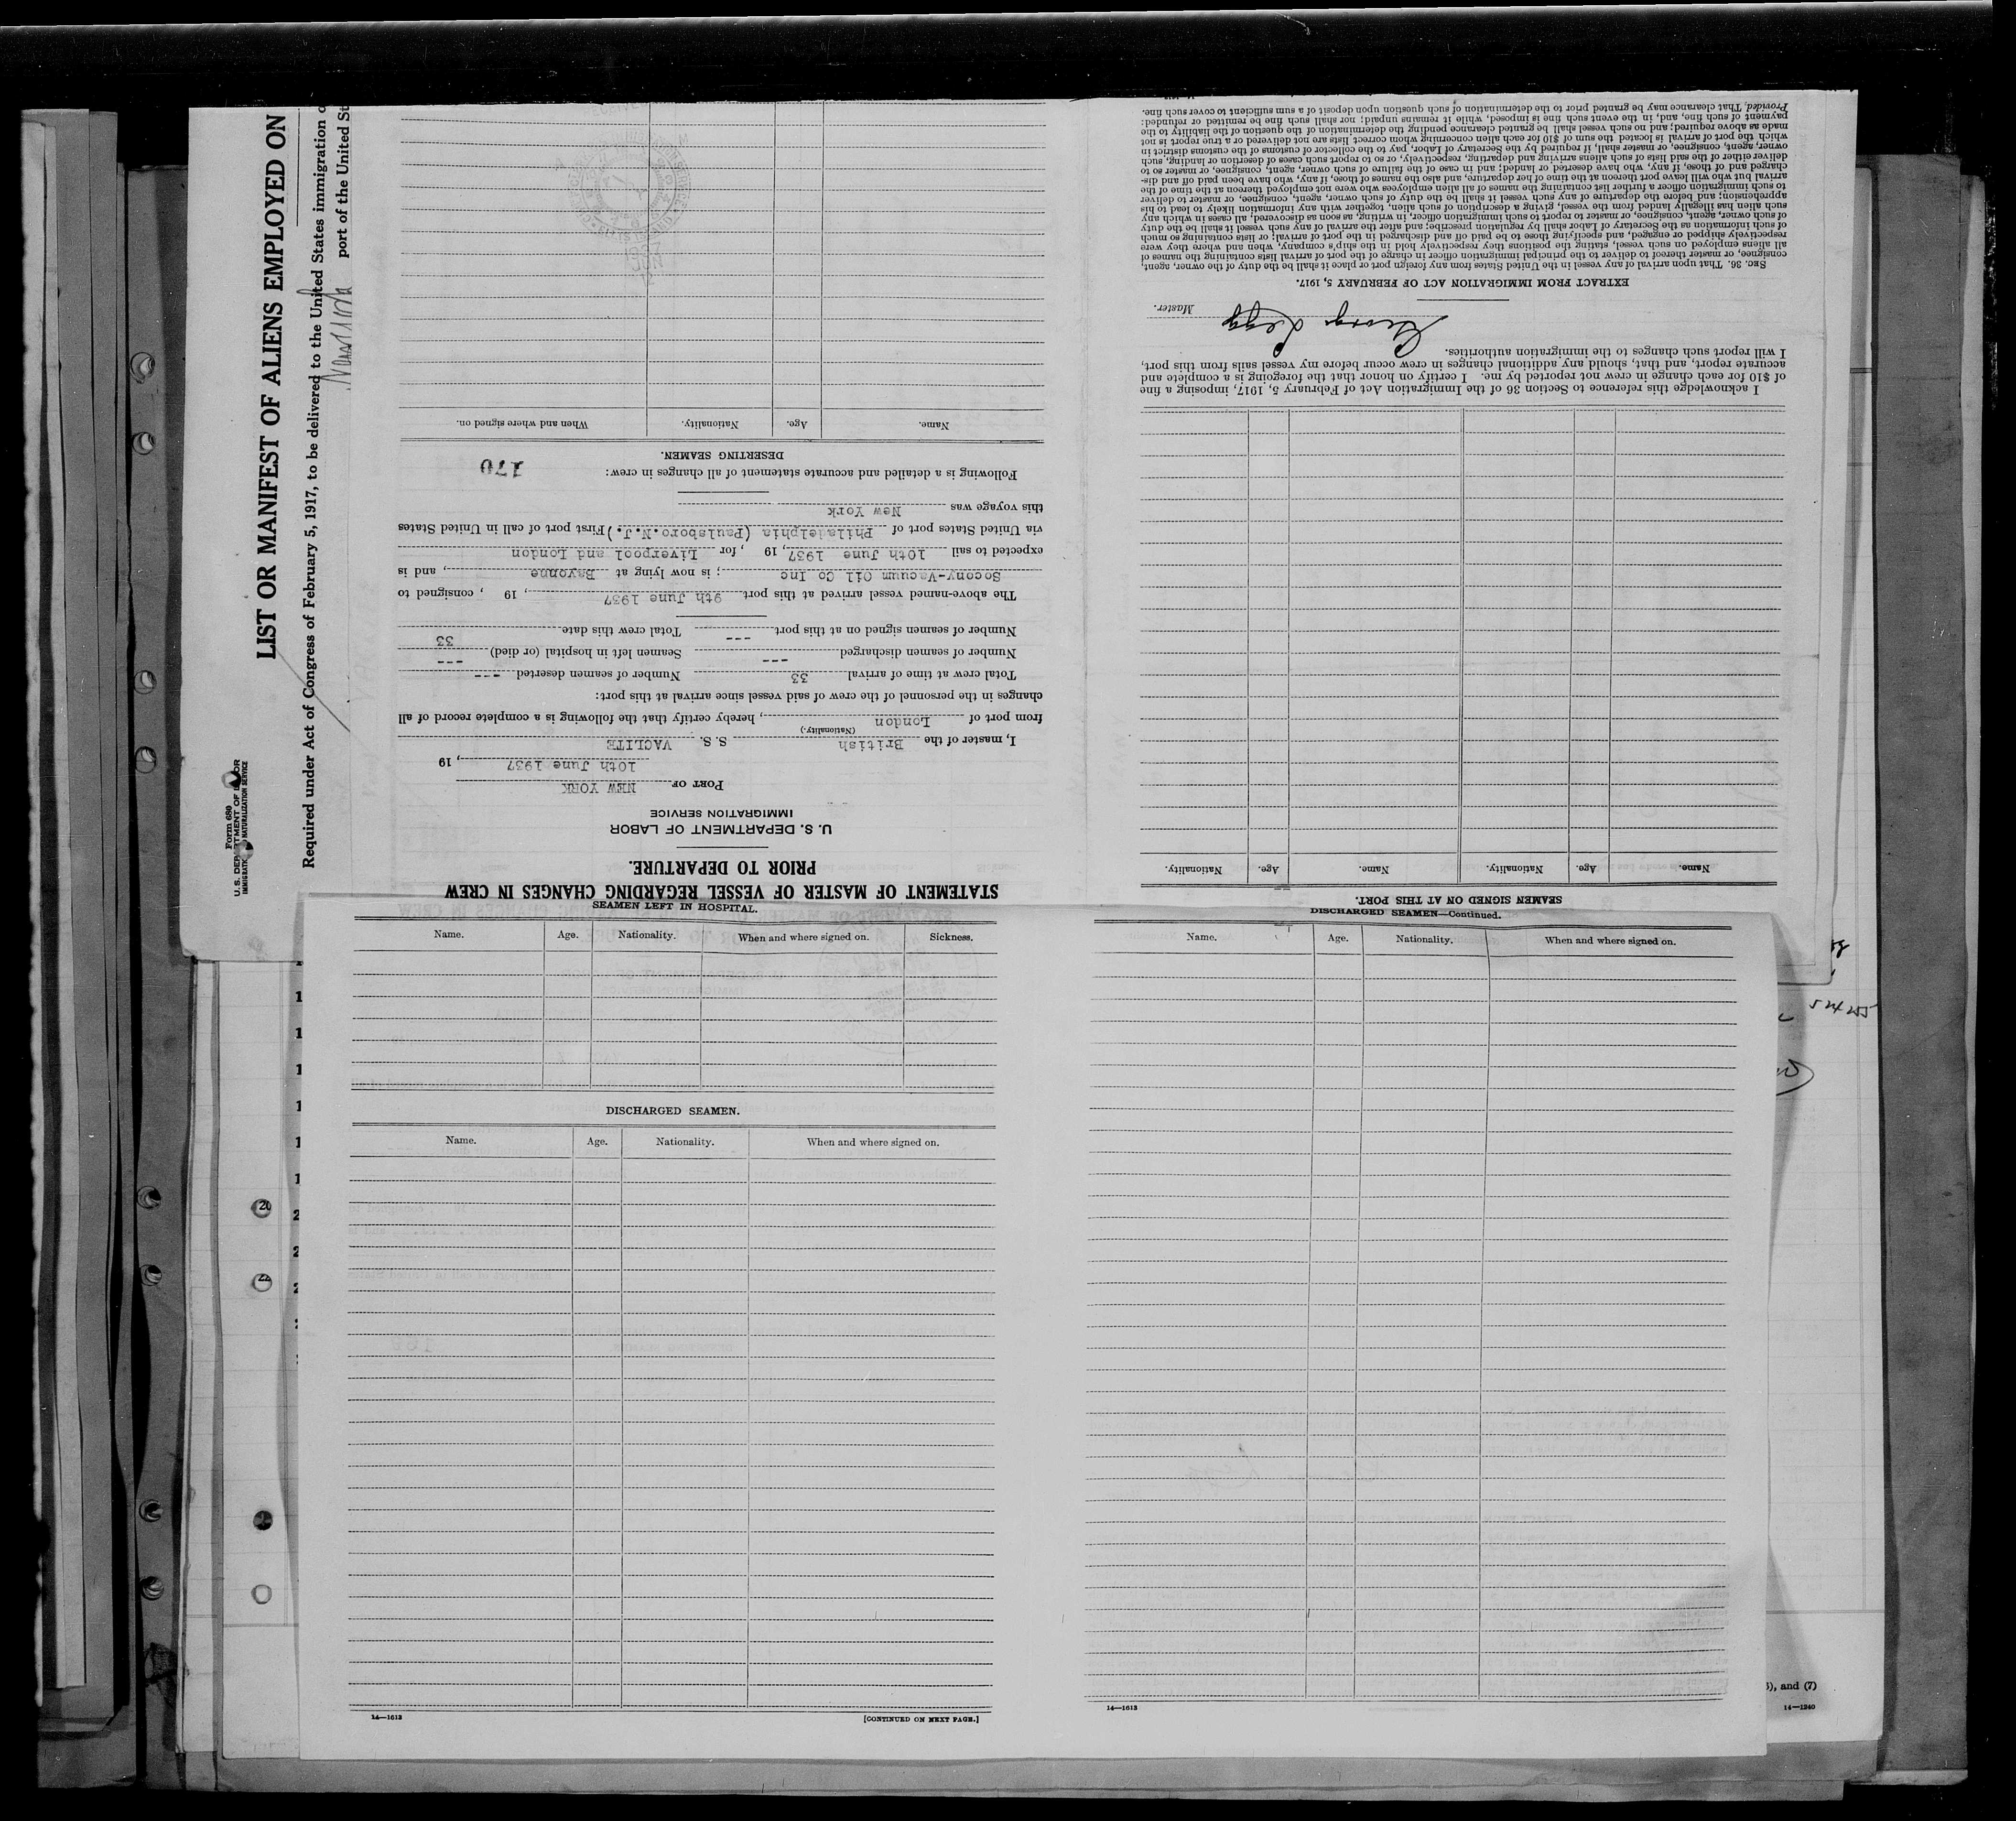 LIST OR MANIFEST OF ALIENS EMPLOYED ON
Required under Act of Congress of February 5, 1917, to be delivered to the United States immigration
port of the United St
Form 680
U. S. DEPARTMENT OF LABOR
IMMIGRATION AND NATURALIZATION SERVICE
STATEMENT OF MASTER OF VESSEL REGARDING CHANGES IN CREW
PRIOR TO DEPARTURE.
U. S. DEPARTMENT OF LABOR
IMMIGRATION SERVICE
PORT OF NEW YORK
10th June 1937, 19
I, master of the British S. S. VACLITE
(Nationality.)
from port of London, hereby certify that the following is a complete record of all
changes in the personnel of the crew of said vessel since arrival at this port:
Total crew at time of arrival 33 Number of seamen deserted ---
Number of seamen discharged --- Seamen left in hospital (or died) ---
Number of seamen signed on at this port --- Total crew this date 33
The above-named vessel arrived at this port 9th June 1937, 19 , consigned to
Socony-Vacuum Oil Co Inc; is now lying at Bayonne, and is
expected to sail 10th June 1937, 19 , for Liverpool and London
via United States port of Philadelphia (Paulsboro.N.J.) First port of call in United States
this voyage was New York
Following is a detailed and accurate statement of all changes in crew:
170
DESERTING SEAMEN.
Name. Age. Nationality. When and where signed on.
SEAMEN SIGNED ON AT THIS PORT.
Name. Age. Nationality. Name. Age. Nationality.
I acknowledge this reference to Section 36 of the Immigration Act of February 5, 1917, imposing a fine
of $10 for each change in crew not reported by me. I certify on honor that the foregoing is a complete and
accurate report, and that, should any additional changes in crew occur before my vessel sails from this port,
I will report such changes to the immigration authorities.
George Legg
Master.
EXTRACT FROM IMMIGRATION ACT OF FEBRUARY 5, 1917.
SEC. 36. That upon arrival of any vessel in the United States from any foreign port or place it shall be the duty of the owner, agent,
consignee, or master thereof to deliver to the principal immigration officer in charge of the port of arrival lists containing the names of
all aliens employed on such vessel, stating the positions they respectively hold in the ship's company, when and where they were
respectively shipped or engaged, and specifying those to be paid off and discharged in the port of arrival; or lists containing so much
of such information as the Secretary of Labor shall by regulation prescribe; and after the arrival of any such vessel it shall be the duty
of such owner, agent, consignee, or master to report to such immigration officer, in writing, as soon as discovered, all cases in which any
such alien has illegally landed from the vessel, giving a description of such alien, together with any information likely to lead to his
apprehension; and before the departure of any such vessel it shall be the duty of such owner, agent, consignee, or master to deliver
to such immigration officer a further list containing the names of all alien employees who were not employed thereon at the time of the
arrival but who will leave port thereon at the time of her departure, and also the names of those, if any, who have been paid off and dis-
charged and of those, if any, who have deserted or landed; and in case of the failure of such owner, agent, consignee, or master so to
deliver either of the said lists of such aliens arriving and departing, respectively, or so to report such cases of desertion or landing, such
owner, agent, consignee, or master shall, if required by the Secretary of Labor, pay to the collector of customs of the customs district in
which the port of arrival is located the sum of $10 for each alien concerning whom correct lists are not delivered or a true report is not
made as above required; and no such vessel shall be granted clearance pending the determination of the question of the liability to the
payment of such fine, and, in the event such fine is imposed, while it remains unpaid; nor shall such fine be remitted or refunded:
Provided, That clearance may be granted prior to the determination of such question upon deposit of a sum sufficient to cover such fine.
SEAMEN LEFT IN HOSPITAL.
Name. Age. Nationality. When and where signed on. Sickness.
DISCHARGED SEAMEN.
Name. Age. Nationality. When and where signed on.
14—1613
[CONTINUED ON NEXT PAGE.]
DISCHARGED SEAMEN—Continued.
Name. Age. Nationality. When and where signed on.
14—1613
), and (7)
14—1240